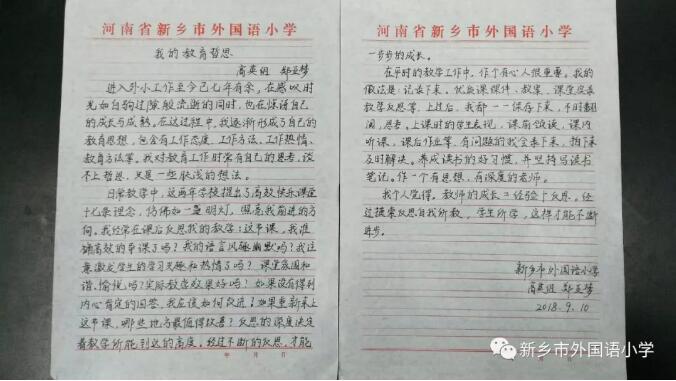 河南省新乡市外国语小学
我的教育哲思
高英组 郑亚梦
进入外小工作至今已七年有余，在感叹时
光如白驹过隙般流逝的同时，也在惊讶自己
的成长与成熟。在这过程中，我逐渐形成了自己的
教育思想，包含有工作态度、工作方法、工作热情、
教育方法等。我对教育工作时常有自己的思考，谈
不上哲思，只是一些肤浅的想法。
日常教学中，这两年学校提出了高效快乐课堂
十七条理念，仿佛如一盏明灯，照亮我前进的方
向。我经常在课后反思我的教学：这节课，我准
确高效的导课了吗？我的语言风趣幽默吗？我注
重激发学生的学习兴趣和热情了吗？课堂氛围和
谐、愉悦吗？实际教学效果好吗？如果没有得到
内心肯定的回答，我应该如何改进？如果重新来上
这节课，哪些地方最值得改善？反思的深度决定
着教学所能到达的高度。经过不断的反思，才能
年 月 日
河南省新乡市外国语小学
一步步的成长。
在平时的教学工作中，作个有心人很重要。我的
做法是：记录下来，优质课课件、教案、课堂实录
教学反思等，上过后，我都一一保存下来，不时翻
阅，思考。上课时的学生表现，课前领读，课内
听课，课后作业等，有问题的我会录下来，拍下来
及时解决。养成读书的好习惯，并坚持写读书
笔记。作一个有思想，有深度的老师。
我个人觉得，教师的成长=经验+反思。经
过摸索反思自我所教，学生所学，这样才能不断
进步。
新乡市外国语小学
高英组 郑亚梦
2018.9.10
年 月 日
新乡市外国语小学